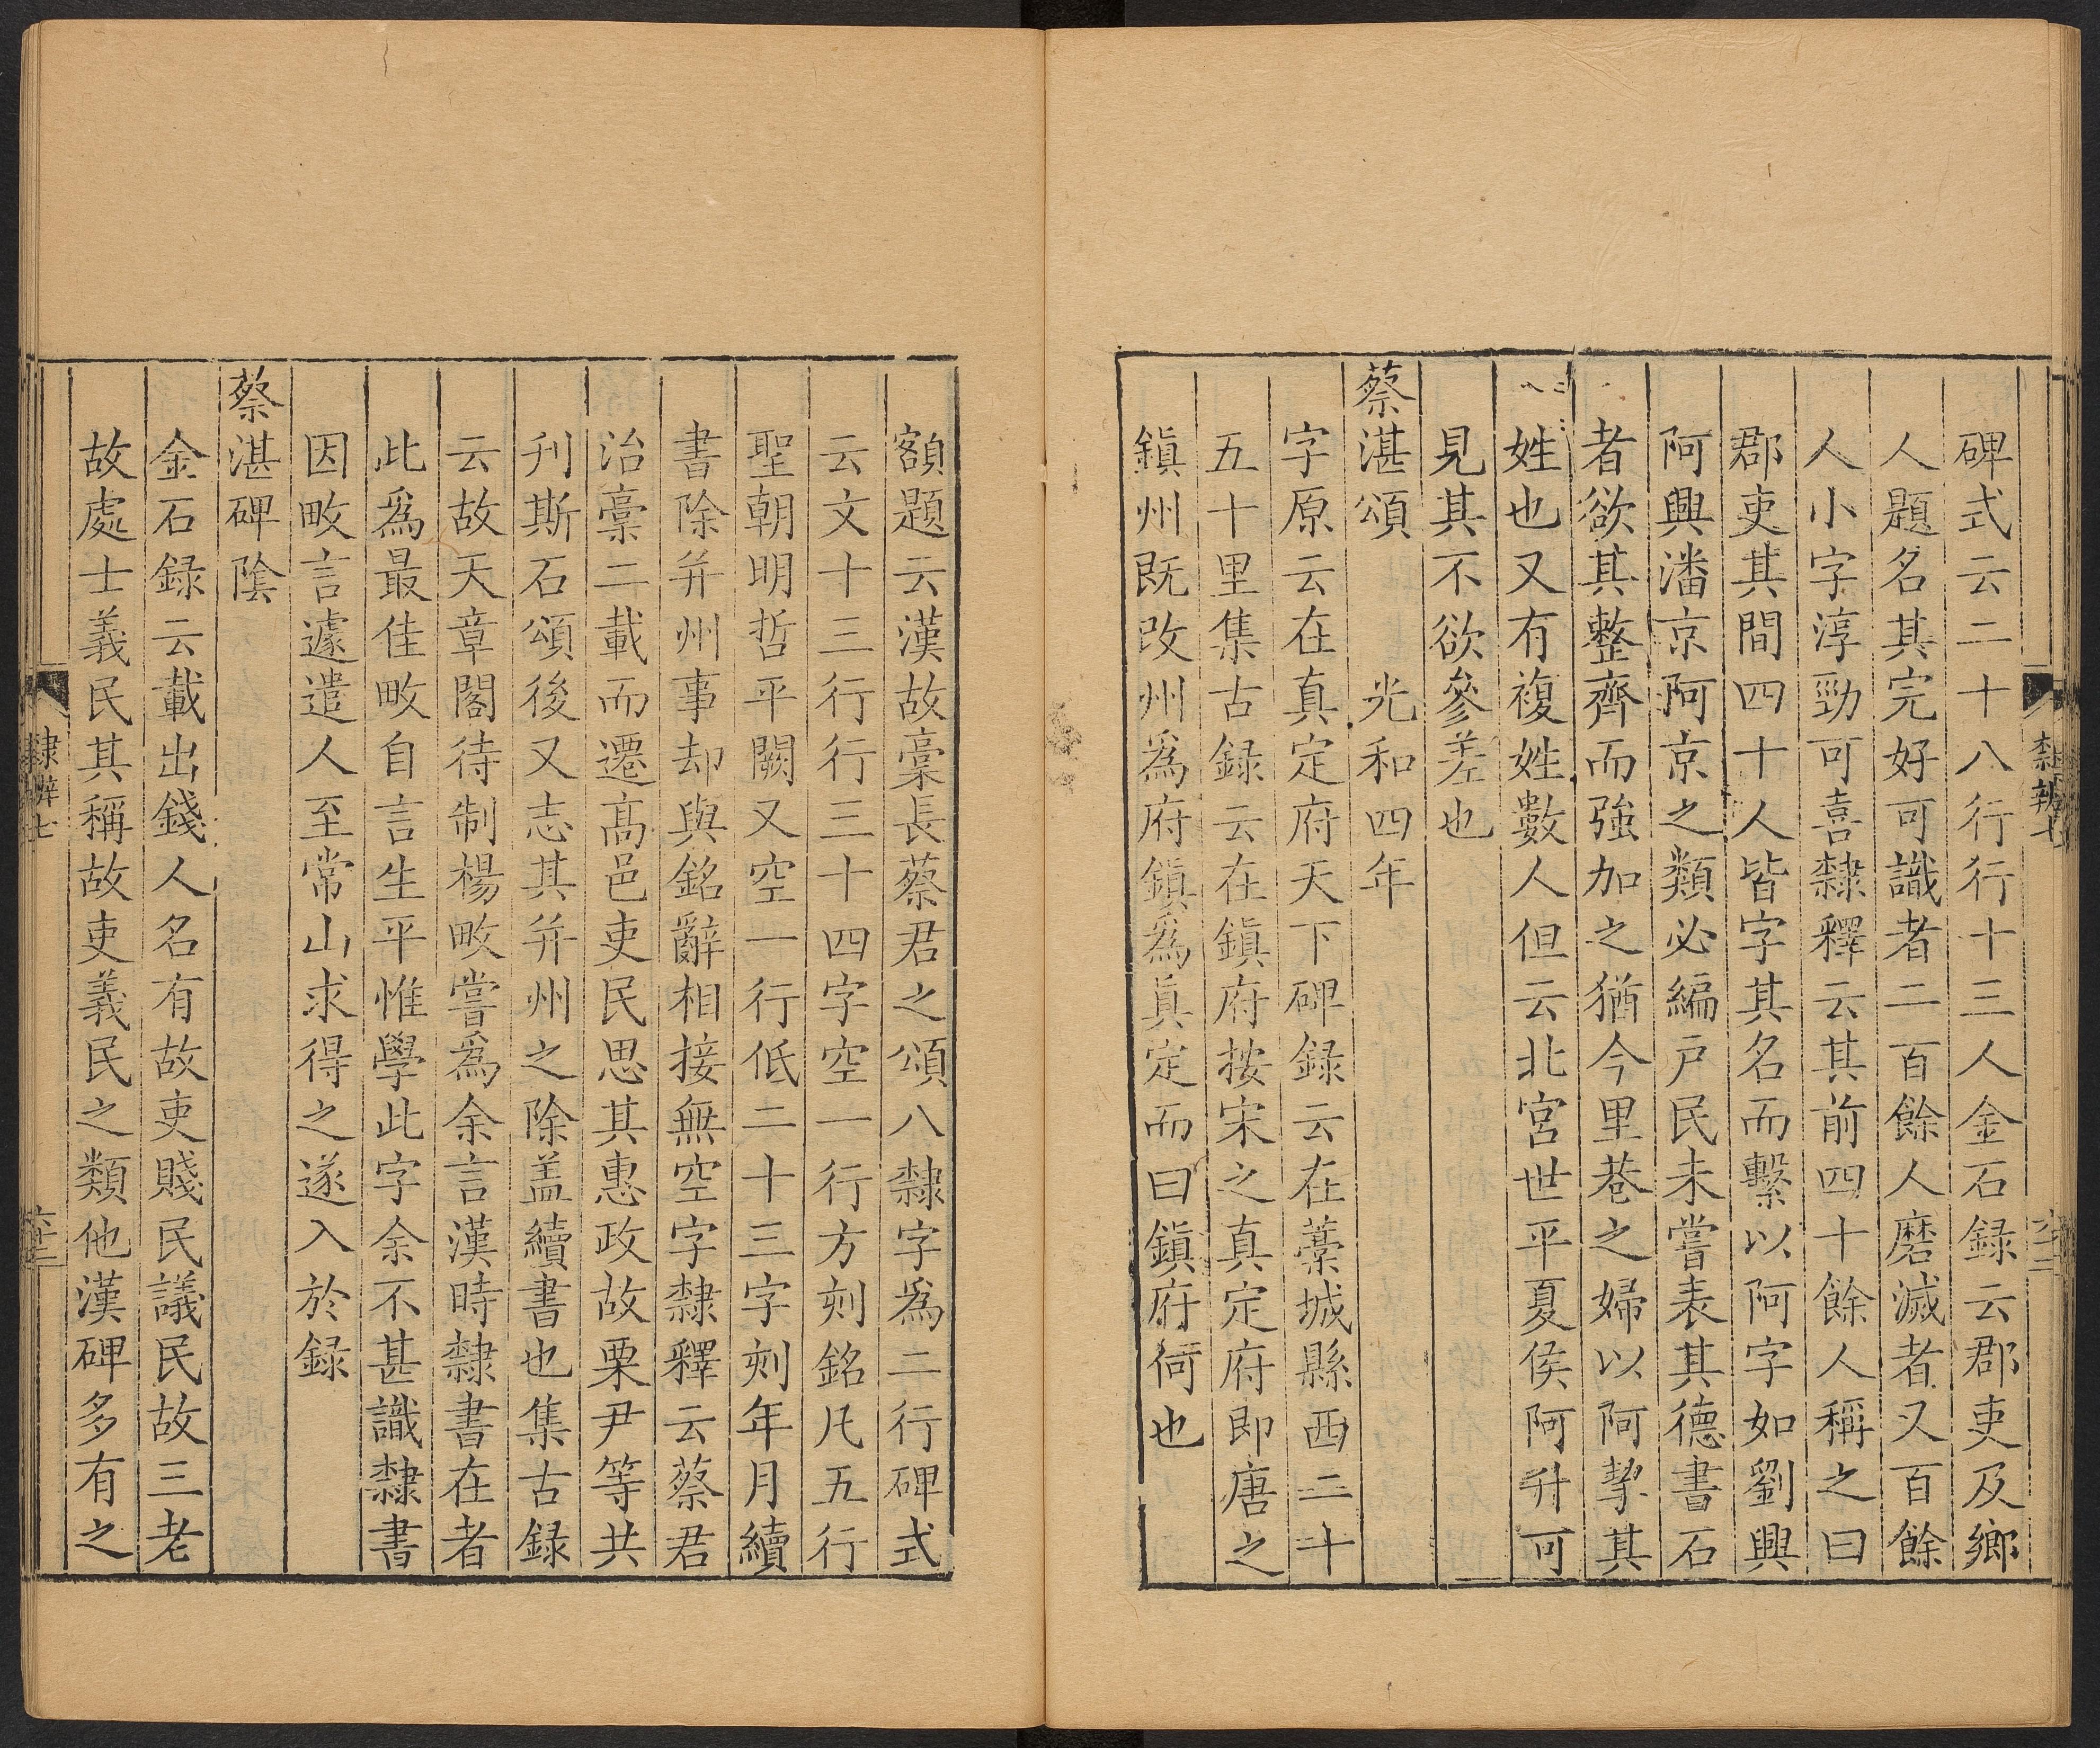 碑式云二十八行行十三人金石録云郡吏及鄉
人題名其完好可識者二百餘人磨滅者又百餘
人小字淳勁可喜隸釋云其前四十餘人稱之曰
郡吏其間四十人皆字其名而繫以阿字如劉興
阿興潘京阿京之類必編戸民未嘗表其德書石
者欲其整齊而強加之猶今里巷之婦以阿挈其
姓也又有複姓數人但云北宮世平夏侯阿升可
見其不欲參差也
蔡湛頌 光和四年
字原云在真定府天下碑録云在藁城縣西二十
五十里集古録云在鎭府按宋之真定府即唐之
鎭州既改州爲府鎭爲眞定而曰鎭府何也
隸辨七
額題云漢故藁長蔡君之頌八隸字爲二行碑式
云文十三行行三十四字空一行方刻銘凡五行
聖朝明哲平闕又空一行低二十三字刻年月續
書除并州事却與銘辭相接無空字隸釋云蔡君
治藁二載而遷高邑吏民思其惠政故栗尹等共
刋斯石頌後又志其并州之除盖續書也集古録
云故天章閣待制楊畋嘗爲余言漢時隸書在者
此爲最佳畋自言生平惟學此字余不甚識隸書
因畋言遽遣人至常山求得之遂入於録
蔡湛碑陰
金石録云載出錢人名有故吏賤民議民故三老
故處士義民其稱故吏義民之類他漢碑多有之
隸辨七